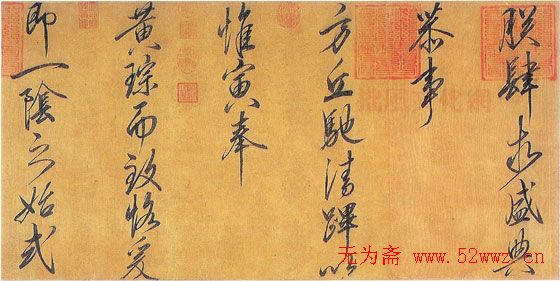 朕肆求盛典
恭事
方丘馳清蹕以
惟寅奉
黃琮而致恪爰
即一陰之始式
无为斋 www.52wwz.cn